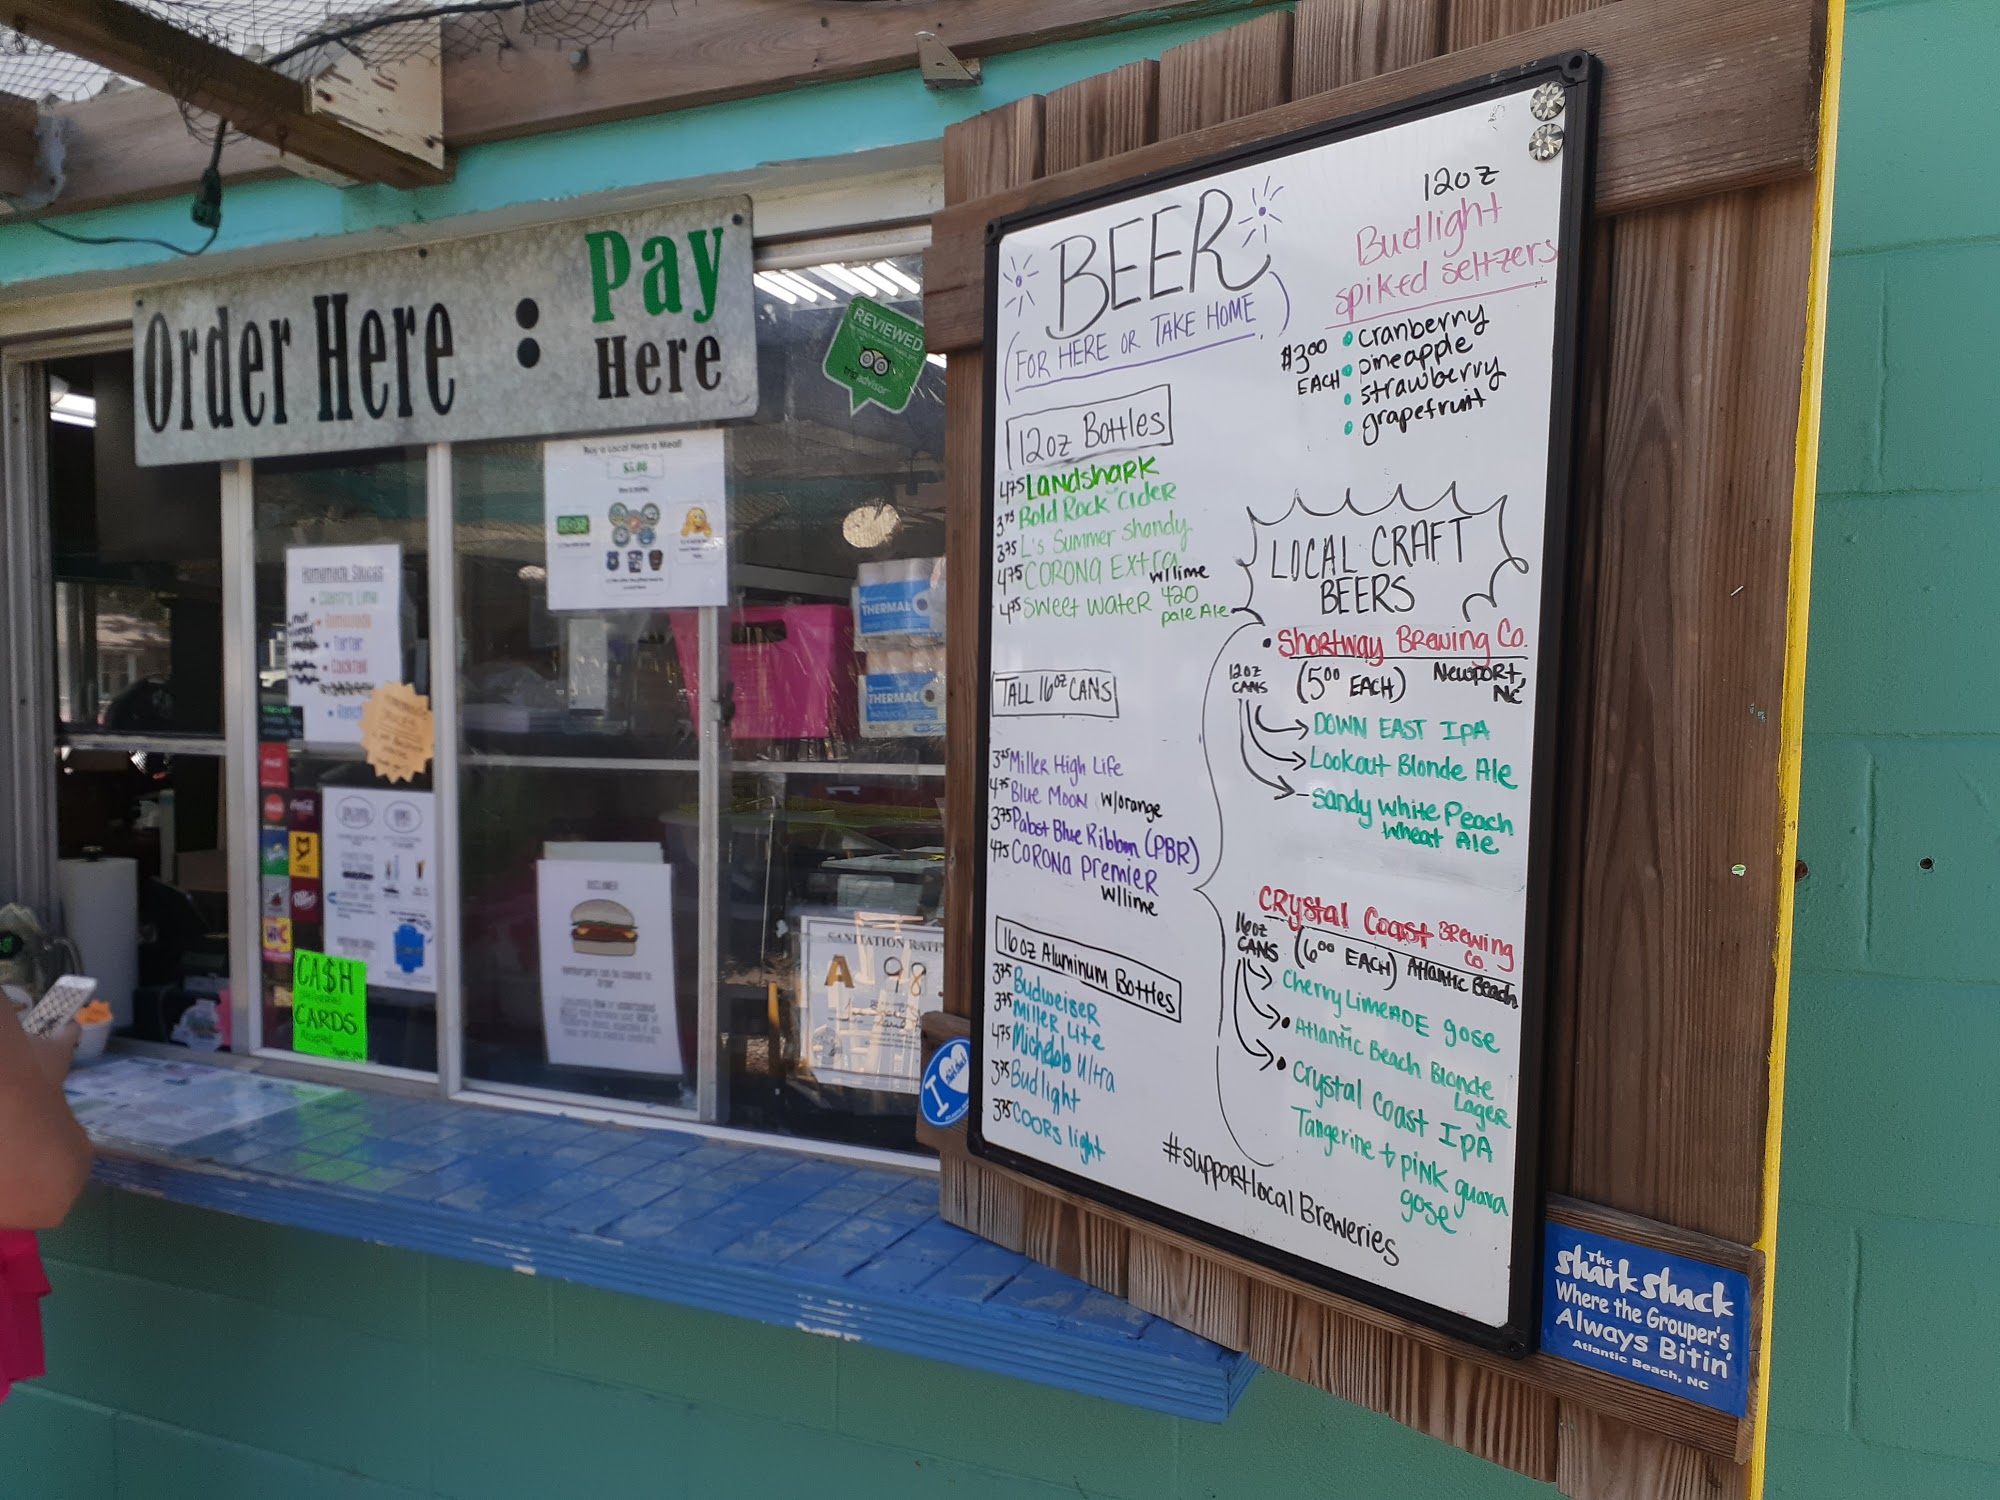 Order Here : Pay
Here
REVIEWED
tripadvisor
Buy a Local Hero a Meal!
$5.00
Homemade Sauces
Tartar
Cocktail
Ranch
CA$H
CARDS
DISCLAIMER
Hamburgers can be cooked to
order
THERMAL
THERMAL
SANITATION RATING
A 98
I
BEER
(FOR HERE OR TAKE HOME.)
12oz Bottles
4.75 Landshark
3.75 Bold Rock Cider
3.75 L's Summer Shandy
4.75 CORONA Extra
w/lime
4.75 Sweet Water 420
pale Ale
TALL 16oz CANS
3.75 Miller High Life
4.75 Blue Moon w/orange
3.75 Pabst Blue Ribbon (PBR)
4.75 CORONA Premier
w/lime
16oz Aluminum Bottles
3.75 Budweiser
3.75 Miller Lite
4.75 Michelob Ultra
3.75 Budlight
3.75 COORS light
12oz
Budlight
spiked seltzers
$3.00 EACH
• cranberry
• pineapple
• strawberry
• grapefruit
LOCAL CRAFT
BEERS
• Shortway Brewing Co.
12oz CANS (5.00 EACH) Newport, NC
DOWN EAST IPA
Lookout Blonde Ale
Sandy White Peach
Wheat Ale
Crystal Coast Brewing Co.
16oz CANS (6.00 EACH) Atlantic Beach
Cherry Limeade gose
• Atlantic Beach Blonde
Lager
• Crystal Coast IPA
Tangerine + pink guava
gose
#supportlocalBreweries
The
Shark Shack
Where the Grouper's
Always Bitin'
Atlantic Beach, NC